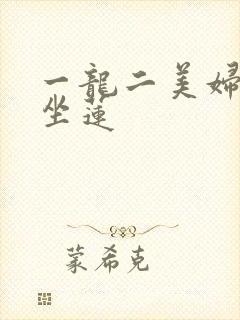 一龍二美婦
坐蓮
蒙希克